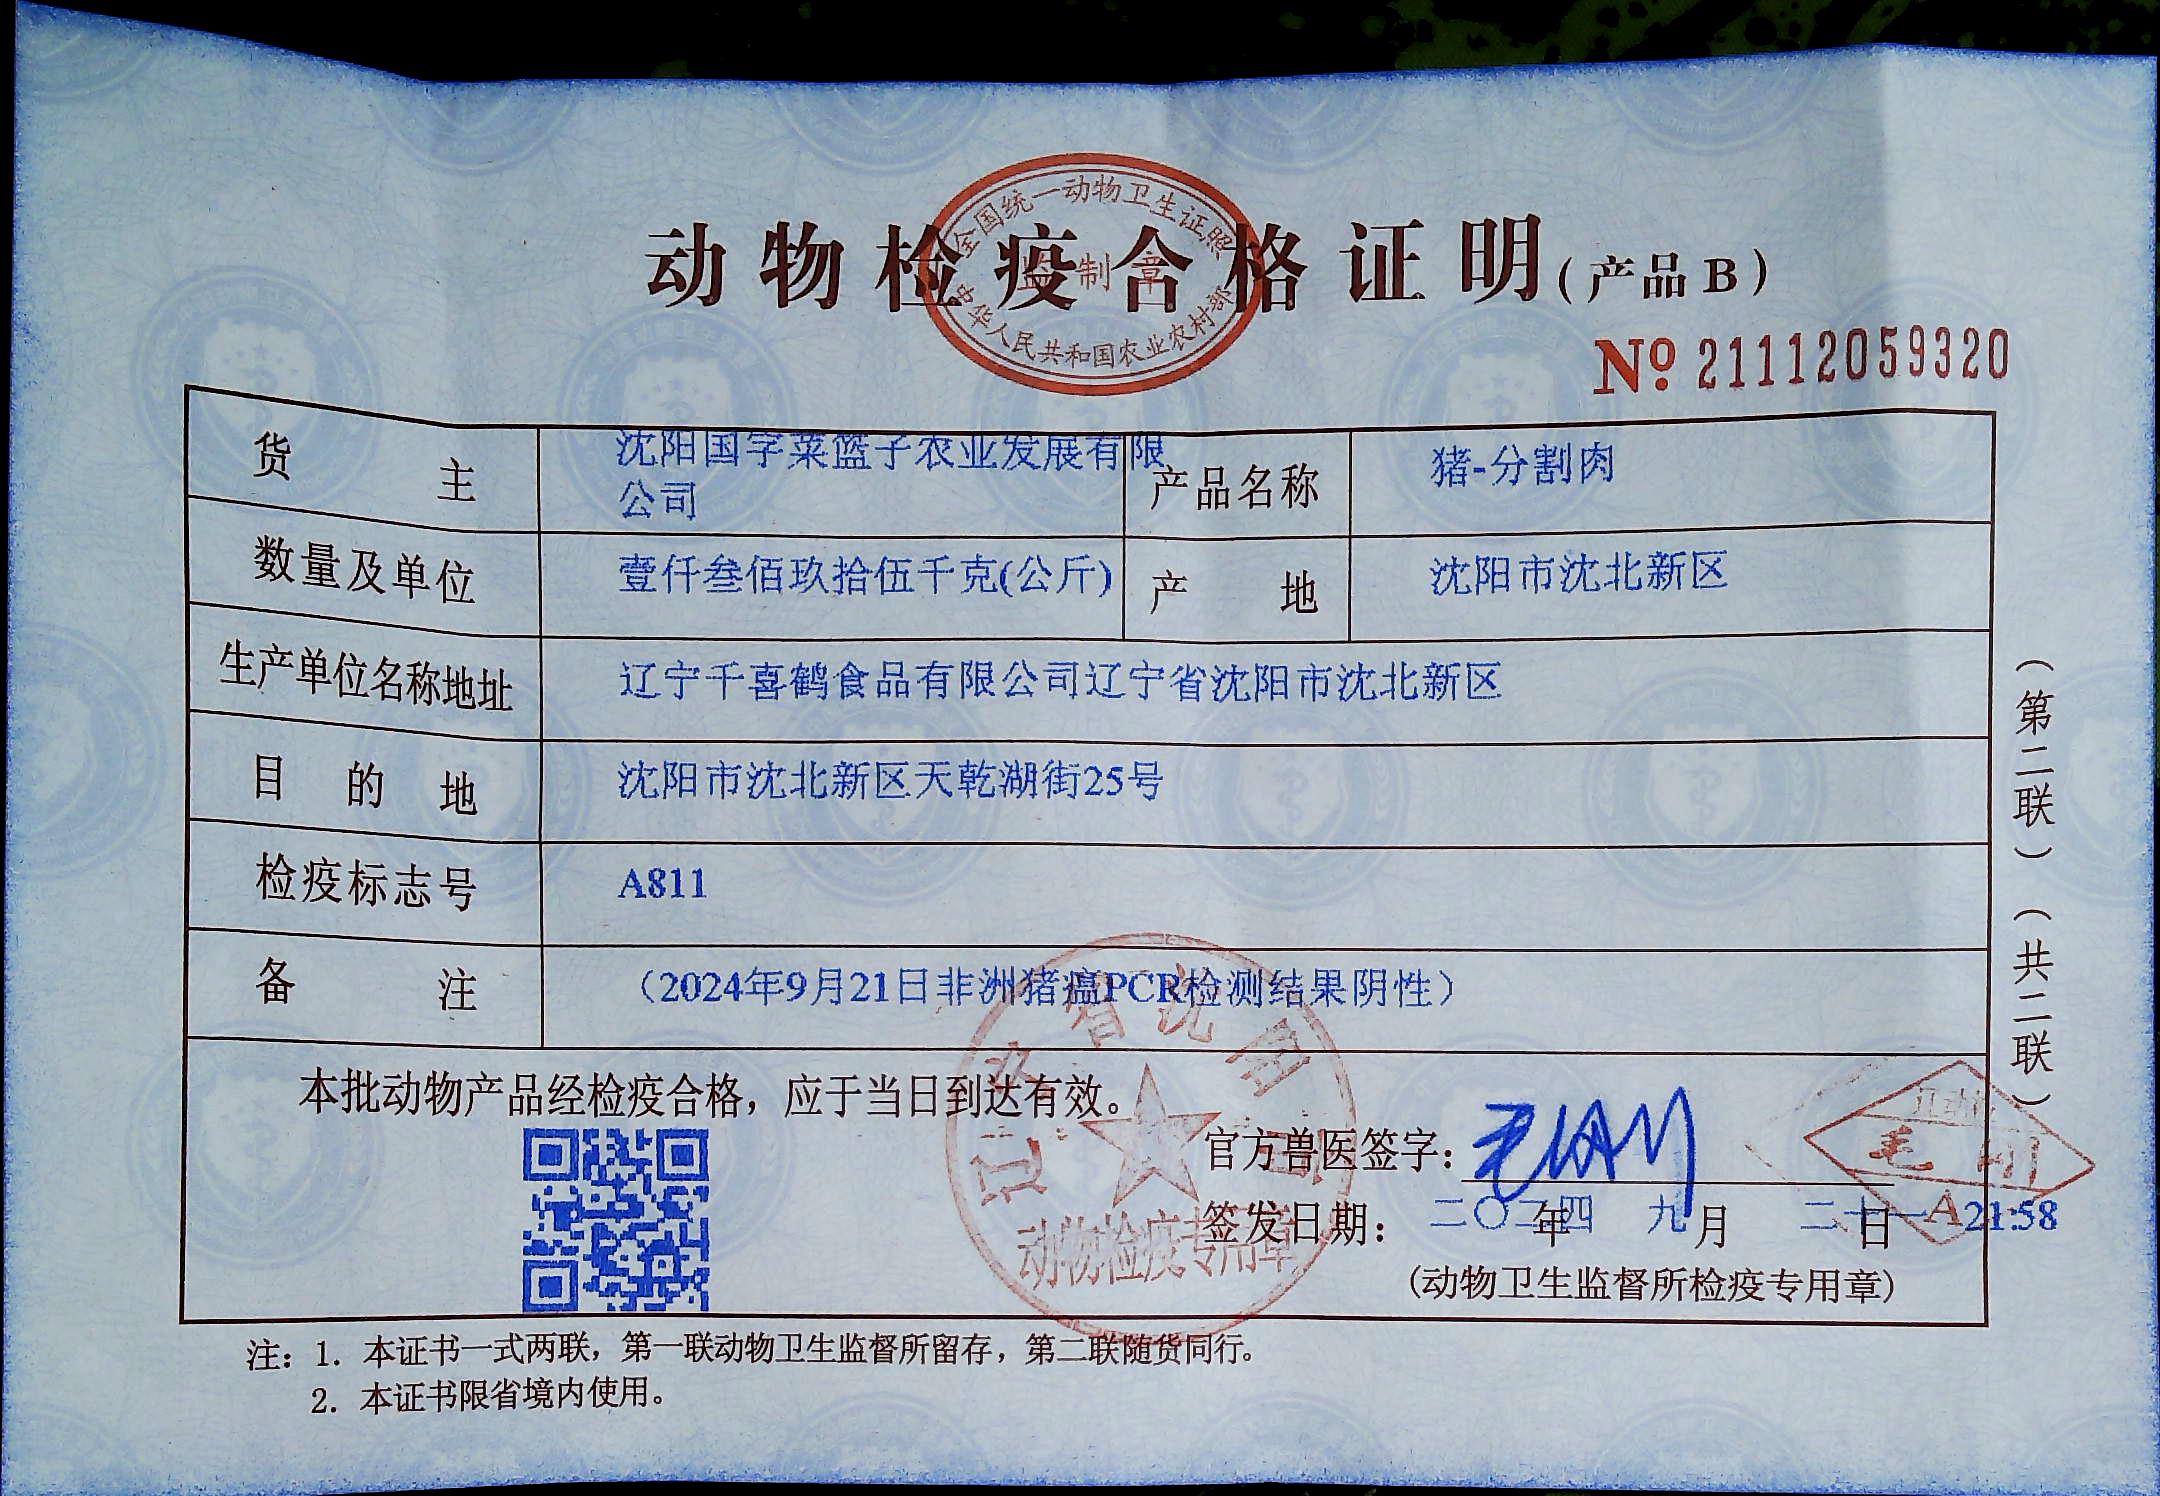 动物检疫合格证明(产品B)
全国统一动物卫生证照
监制章
中华人民共和国农业农村部
№ 21112059320
货主 沈阳国字菜篮子农业发展有限公司 产品名称 猪-分割肉
数量及单位 壹仟叁佰玖拾伍千克(公斤) 产地 沈阳市沈北新区
生产单位名称地址 辽宁千喜鹤食品有限公司辽宁省沈阳市沈北新区
目的地 沈阳市沈北新区天乾湖街25号
检疫标志号 A811
备注 （2024年9月21日非洲猪瘟PCR检测结果阴性）
本批动物产品经检疫合格，应于当日到达有效。
官方兽医签字：毛刚
毛刚
签发日期：二〇二四年九月二十一日 21:58
A
(动物卫生监督所检疫专用章)
辽宁省沈阳
动物检疫专用章
注：1. 本证书一式两联，第一联动物卫生监督所留存，第二联随货同行。
2. 本证书限省境内使用。
（第二联）（共二联）